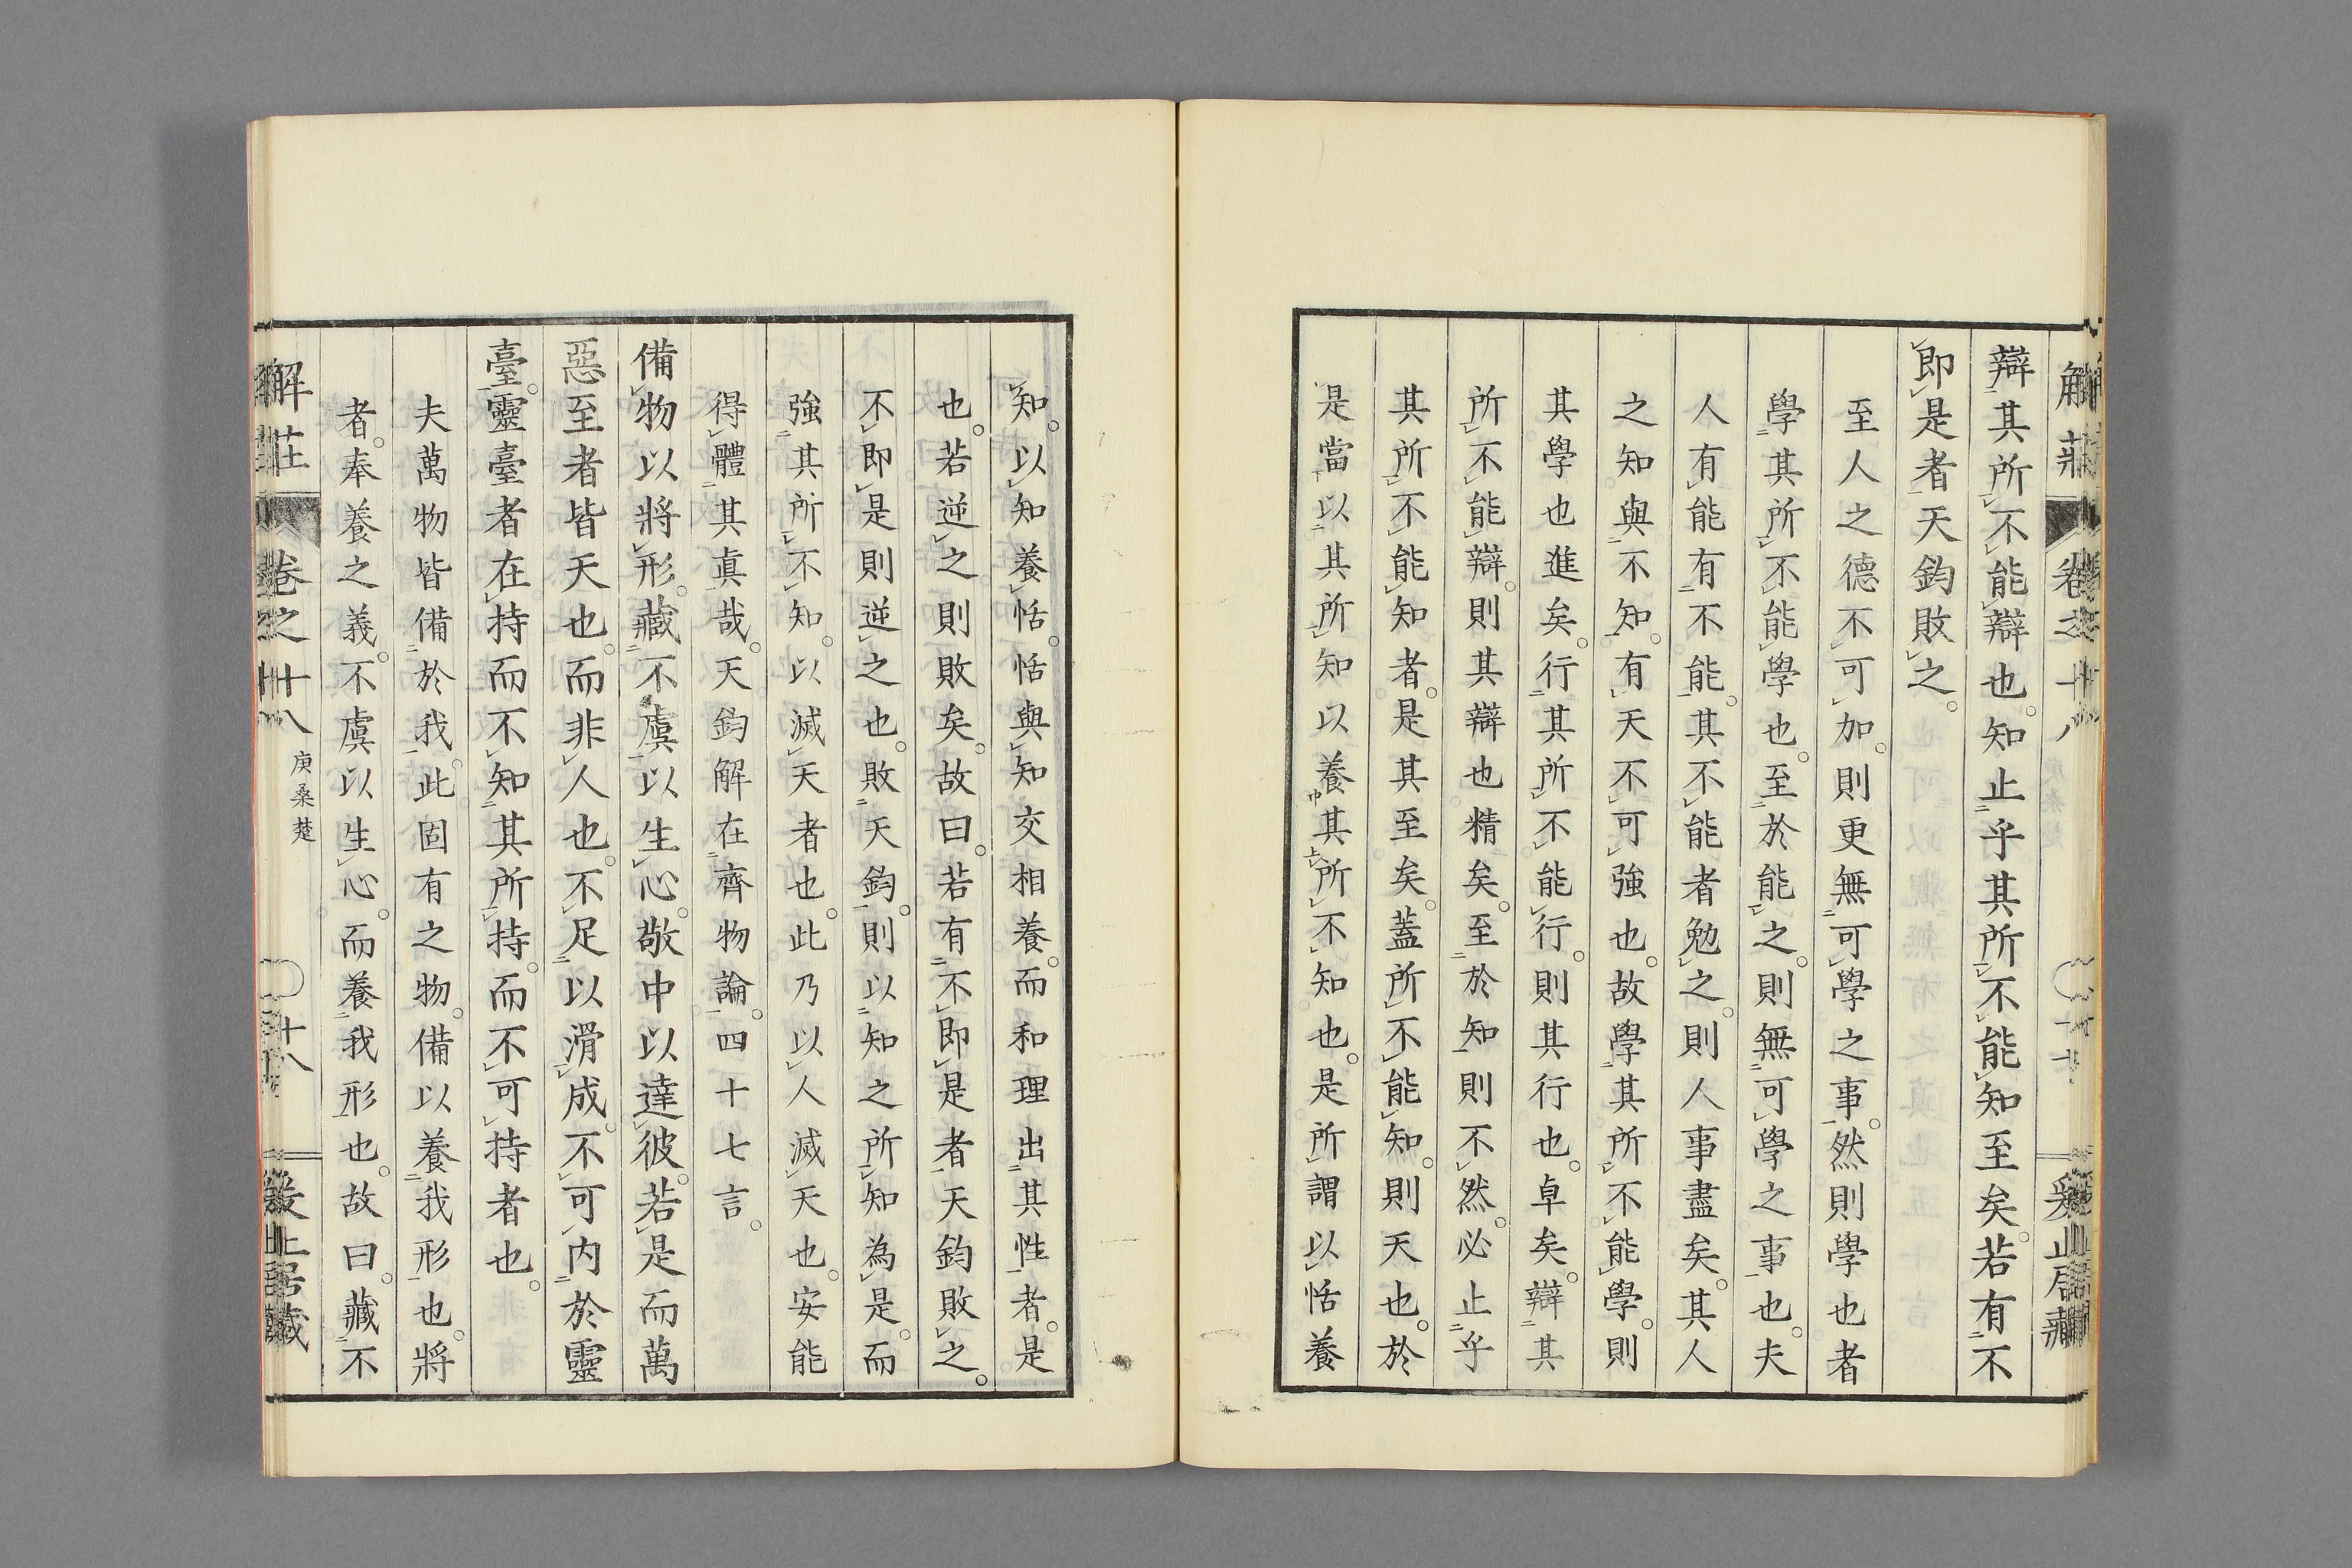 辯其所不能辯也。知止乎其所不能知至矣。若有不
即是者天鈞敗之。
至人之德不可加。則更無可學之事。然則學也者
學其所不能學也。至於能之。則無可學之事也。夫
人有能有不能。其不能者勉之。則人事盡矣。其人
之知與不知。有天不可強也。故學其所不能學。則
其學也進矣。行其所不能行。則其行也。卓矣。辯其
所不能辯。則其辯也精矣。至於知則不然。必止乎
其所不能知者。是其至矣。蓋所不能知。則天也。於
是當以其所知以養其所不知也。是所謂以恬養
知。以知養恬。恬與知交相養。而和理出其性者。是
也。若逆之則敗矣。故曰。若有不即是者天鈞敗之。
不即是則逆之也。敗天鈞。則以知之所知為是。而
強其所不知。以滅天者也。此乃以人滅天也。安能
得體其真哉。天鈞解在齊物論。四十七言。
備物以將形。藏不虞以生心。敬中以達彼。若是而萬
惡至者皆天也。而非人也。不足以滑成。不可內於靈
臺。靈臺者在持而不知其所持。而不可持者也。
夫萬物皆備於我。此固有之物。備以養我形也。將
者。奉養之義。不虞以生心。而養我形也。故曰。藏不
解莊 卷之十八 庚桑楚 〇十八